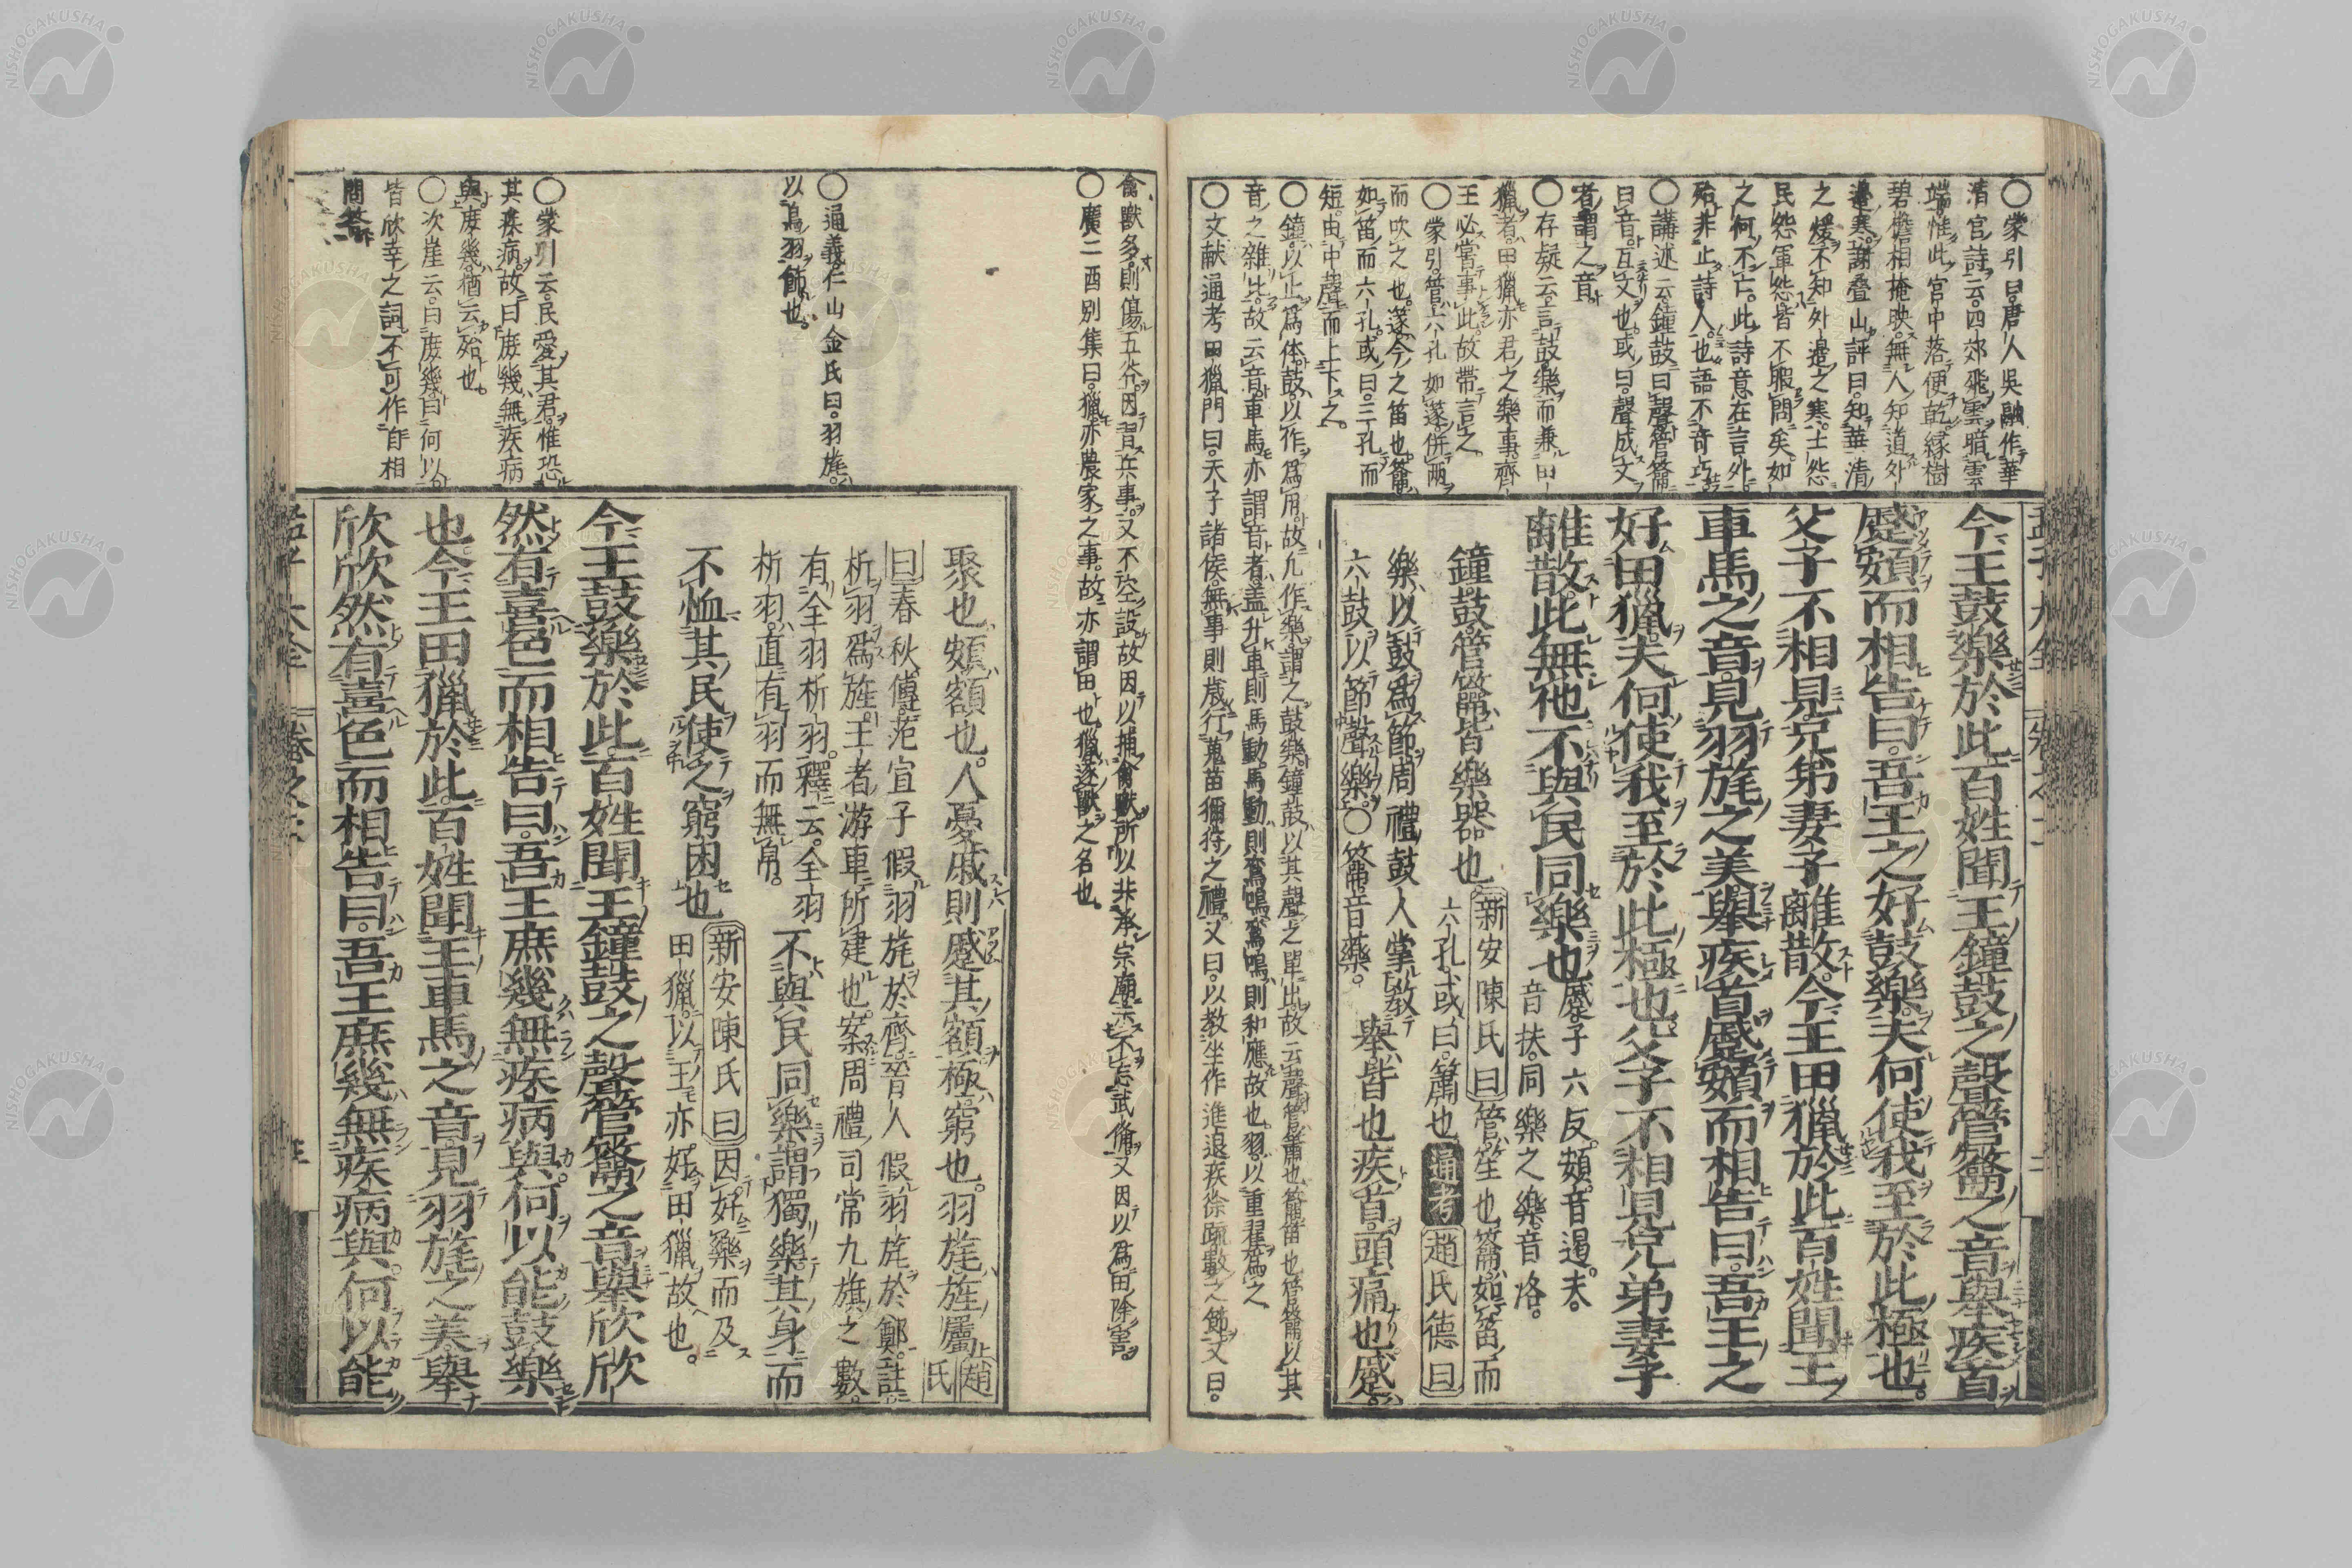 ○蒙引曰唐人吳融作華
清宮詩云四郊飛雲暗雲
端惟此宮中落便乾緑樹
碧檐相掩映無人知道外
邊寒謝叠山評曰知華清
之煖不知外邉之寒士怨
民怨軍怨皆不暇問矣如
之何不亡此詩意在言外
殆非止詩人也語不奇巧
○講述云鐘鼓曰聲管籥
曰音互文也或曰聲成文
者謂之音
○存疑云言鼓樂而兼田
獵者田獵亦君之樂事齊
王必當事此故帶言之
○蒙引管六孔如篴併兩
而吹之也篴今之笛也籥
如笛而六孔或曰三孔而
短由中聲而上下之
○鐘以止爲体鼓以作爲用故凡作樂謂之鼓樂鐘鼓以其聲之單出故云聲管籥也簫笛也管籥以其
音之雜比故云音車馬亦謂音者盖升車則馬動馬動則鸞鳴鸞鳴則和應故也羽以重翟爲之
○文献通考田獵門曰天子諸侯無事則歲行蒐苗獮狩之禮又曰以教坐作進退疾徐疏數之節又曰
今王鼓樂於此百姓聞王鐘鼓之聲管籥之音舉疾首
蹙頞而相告曰吾王之好鼓樂夫何使我至於此極也
父子不相見兄弟妻子離散今王田獵於此百姓聞王
車馬之音見羽旄之美舉疾首蹙頞而相告曰吾王之
好田獵夫何使我至於此極也父子不相見兄弟妻子
離散此無他不與民同樂也蹙子六反頞音遏夫
音扶同樂之樂音洛
鐘鼓管籥皆樂器也新安陳氏曰管笙也籥如笛而
六孔或曰簫也通考趙氏德曰
樂以鼓爲節周禮鼓人掌教
六鼓以節聲樂○籥音藥
舉皆也疾首頭痛也蹙
禽獸多則傷五谷因習兵事又不空設故因以捕禽獸所以共承宗廟示不忘武備又因以爲田除害
○廣二酉別集曰獵亦農家之事故亦謂田也獵逐獸之名也
○通義仁山金氏曰羽旄
以鳥羽飾也
○蒙引云民愛其君惟恐
其疾病故曰庶幾無疾病
與庶幾猶云殆也
○次崖云曰庶幾曰何以
皆欣幸之詞不可作自相
問答
聚也頞額也人憂戚則蹙其額極窮也羽旄旌屬趙氏
曰春秋傳范宣子假羽旄於齊晉人假羽旄於鄭註
析羽爲旌王者游車所建也案周禮司常九旗之數
有全羽析羽釋云全羽
析羽直有羽而無帛
不與民同樂謂獨樂其身而
不恤其民使之窮困也新安陳氏曰因好樂而及
田獵以王亦好田獵故也
今王鼓樂於此百姓聞王鐘鼓之聲管籥之音舉欣欣
然有喜色而相告曰吾王庶幾無疾病與何以能鼓樂
也今王田獵於此百姓聞王車馬之音見羽旄之美舉
欣欣然有喜色而相告曰吾王庶幾無疾病與何以能
NISHOGAKUSHA